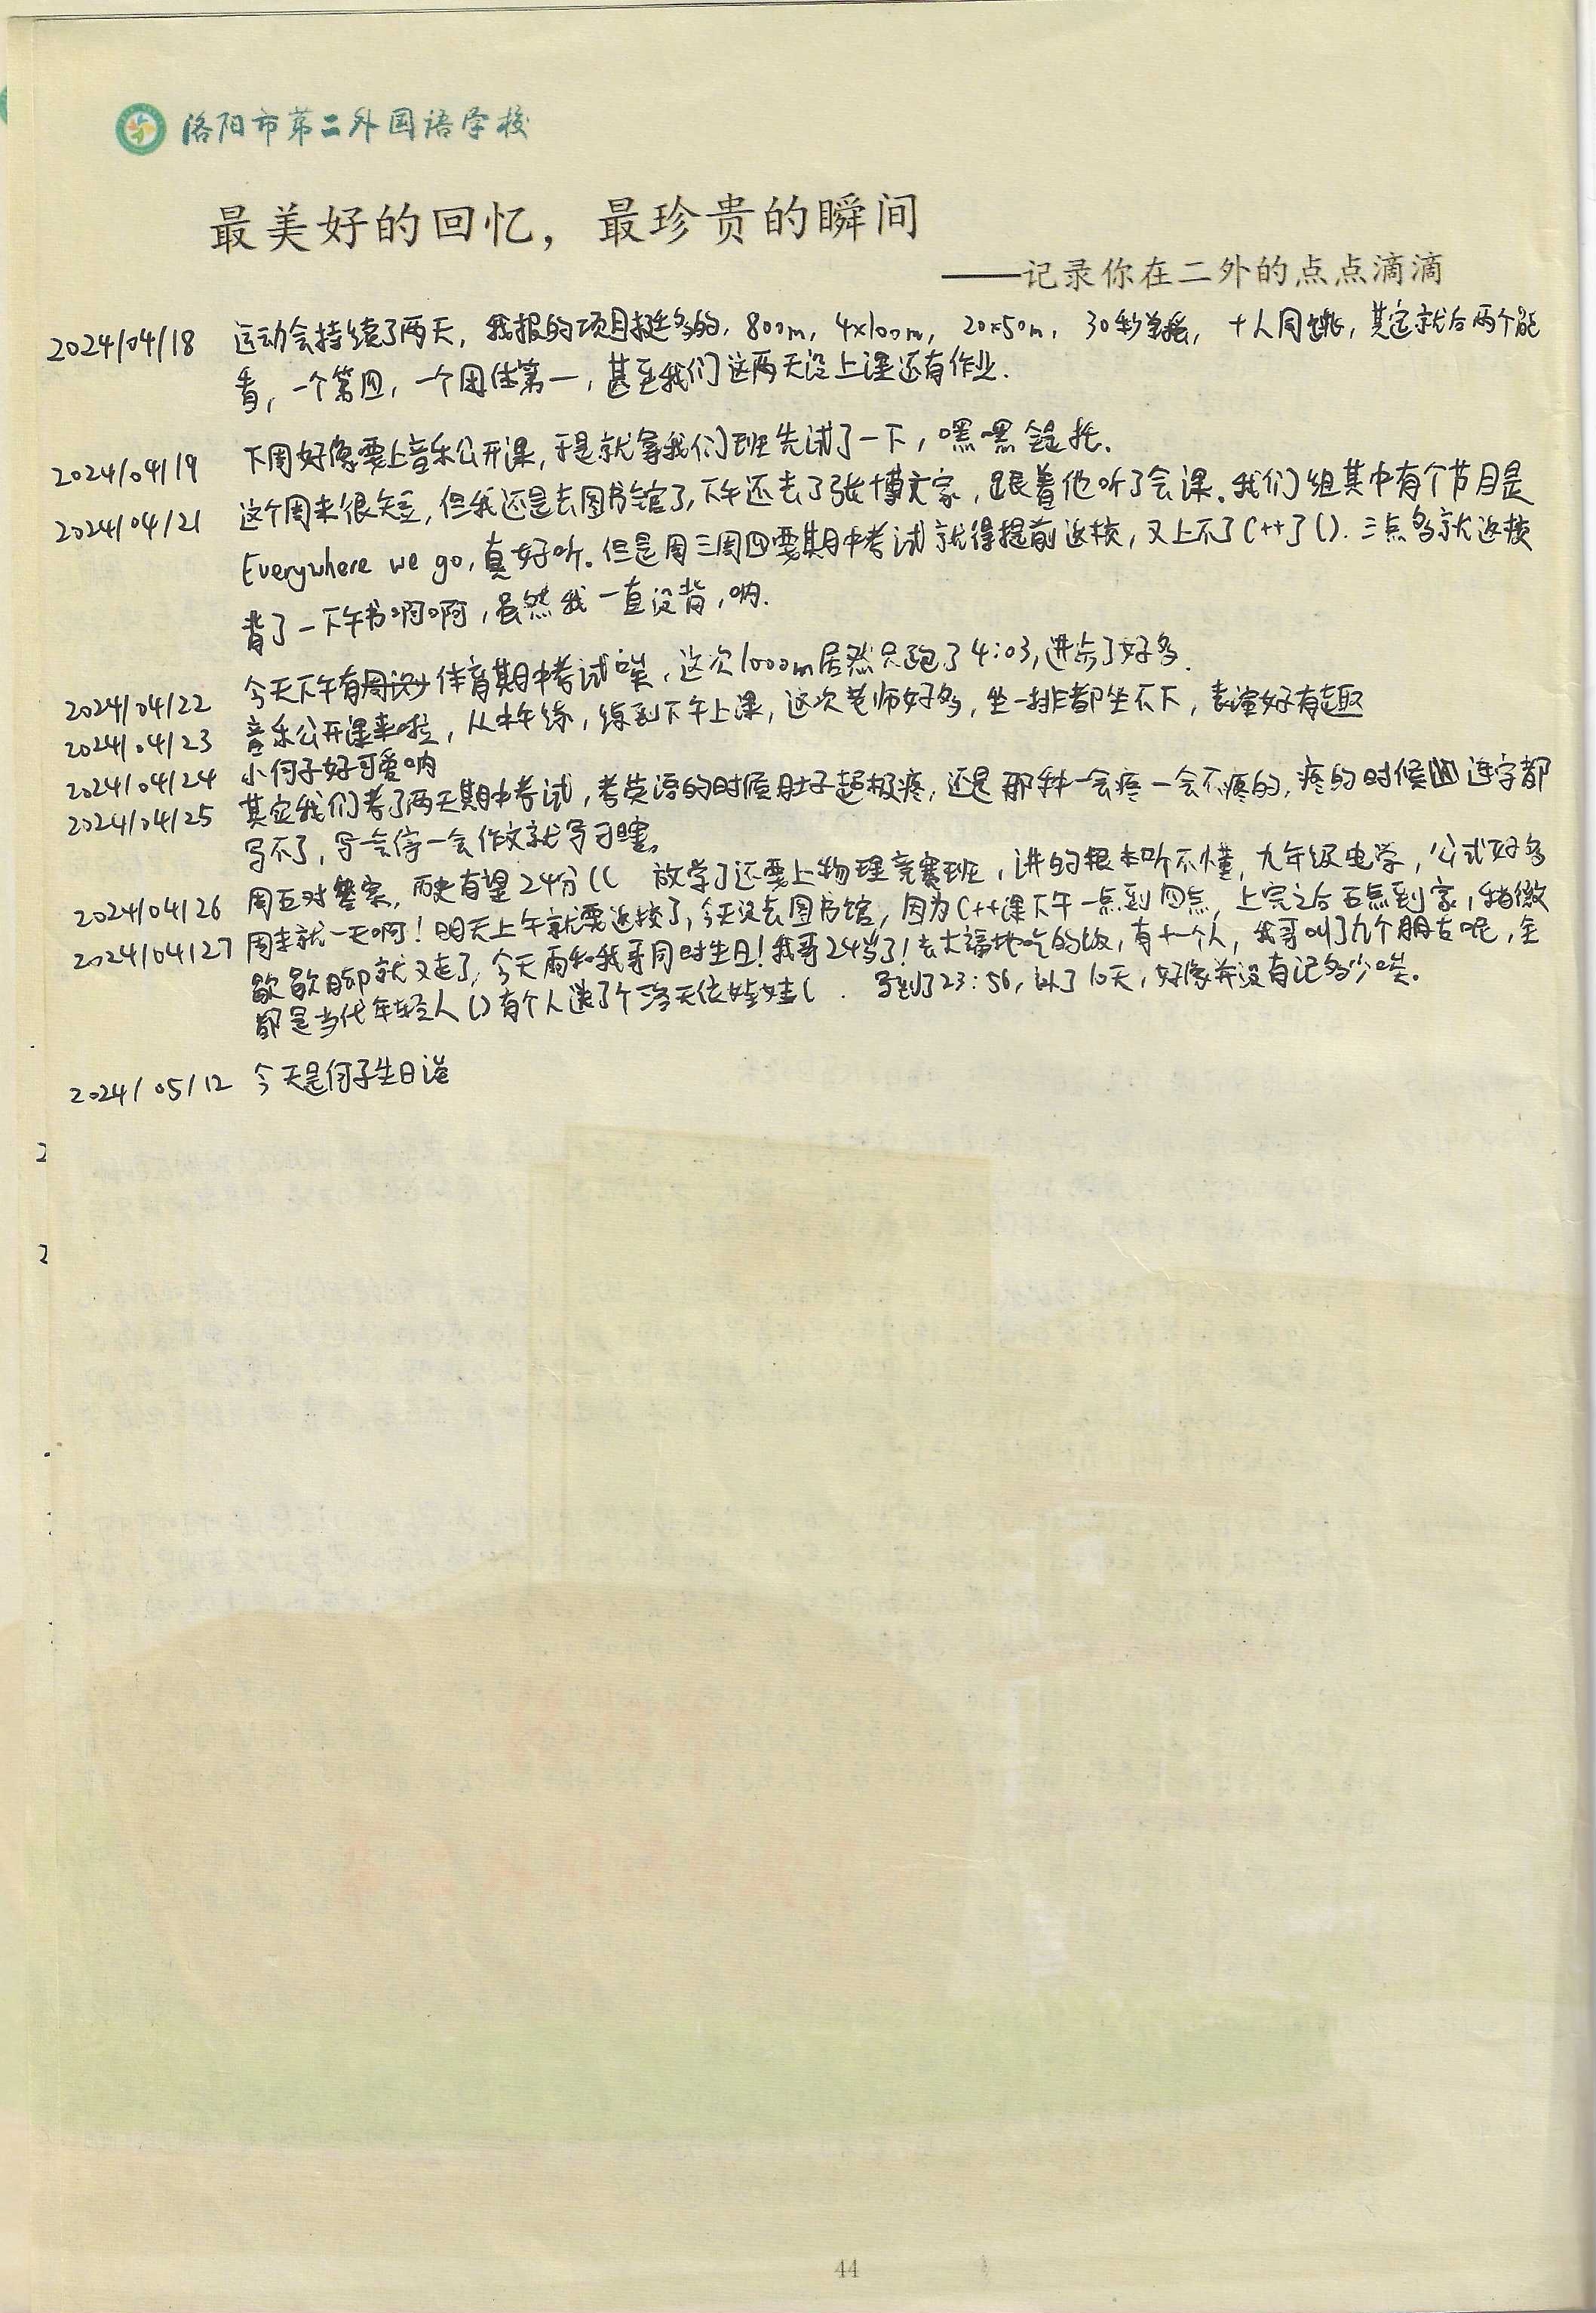 洛阳市第二外国语学校
最美好的回忆，最珍贵的瞬间
——记录你在二外的点点滴滴
2024/04/18 运动会持续了两天，我报的项目挺多的，800m，4x100m，20x50m，30秒单摇，十人同跳，其实就后两个能
看，一个第四，一个团体第一，甚至我们这两天没上课还有作业.
2024/04/19 下周好像要上音乐公开课，于是就拿我们班先讲了一下，嘿嘿
2024/04/21 这个周末很短，但我还是去图书馆了，下午还去了张博文家，跟着他听了会课。我们组其中有个节目是
Everywhere we go，真好听。但是周三周四要期中考试就得提前返校，又上不了C++了().三点多就返校
背了一下午书啊啊，虽然我一直没背，呐.
2024/04/22 今天下午有体育期中考试唉，这次1000m居然只跑了4:03，进步了好多.
2024/04/23 音乐公开课来啦，从中午练，练到下午上课，这次老师好多，坐一排都坐不下，表演好有趣
2024/04/24 小何子好可爱呐
2024/04/25 其实我们考了两天期中考试，考英语的时候肚子超极疼，还是那种一会疼一会不疼的，疼的时候连字都
写不了，写一会停一会作文就写了
2024/04/26 周五对答案，历史有望24分(( 放学了还要上物理竞赛班，讲的根本听不懂，九年级电学，公式好多
2024/04/27 周末就一天啊！明天上午就要返校了，今天没去图书馆，因为C++课下午一点到四点，上完之后五点到家，稍微
歇歇脚就又走了，今天雨和我哥同时生日！我哥24岁了！去大福地吃的饭，有十一个人，我哥叫了九个朋友呢，全
都是当代年轻人()有个人送了个洛天依娃娃( . 写到了23:56，以了10天，好像并没有记多少唉。
2024/05/12 今天是何子生日诶
2
2
44